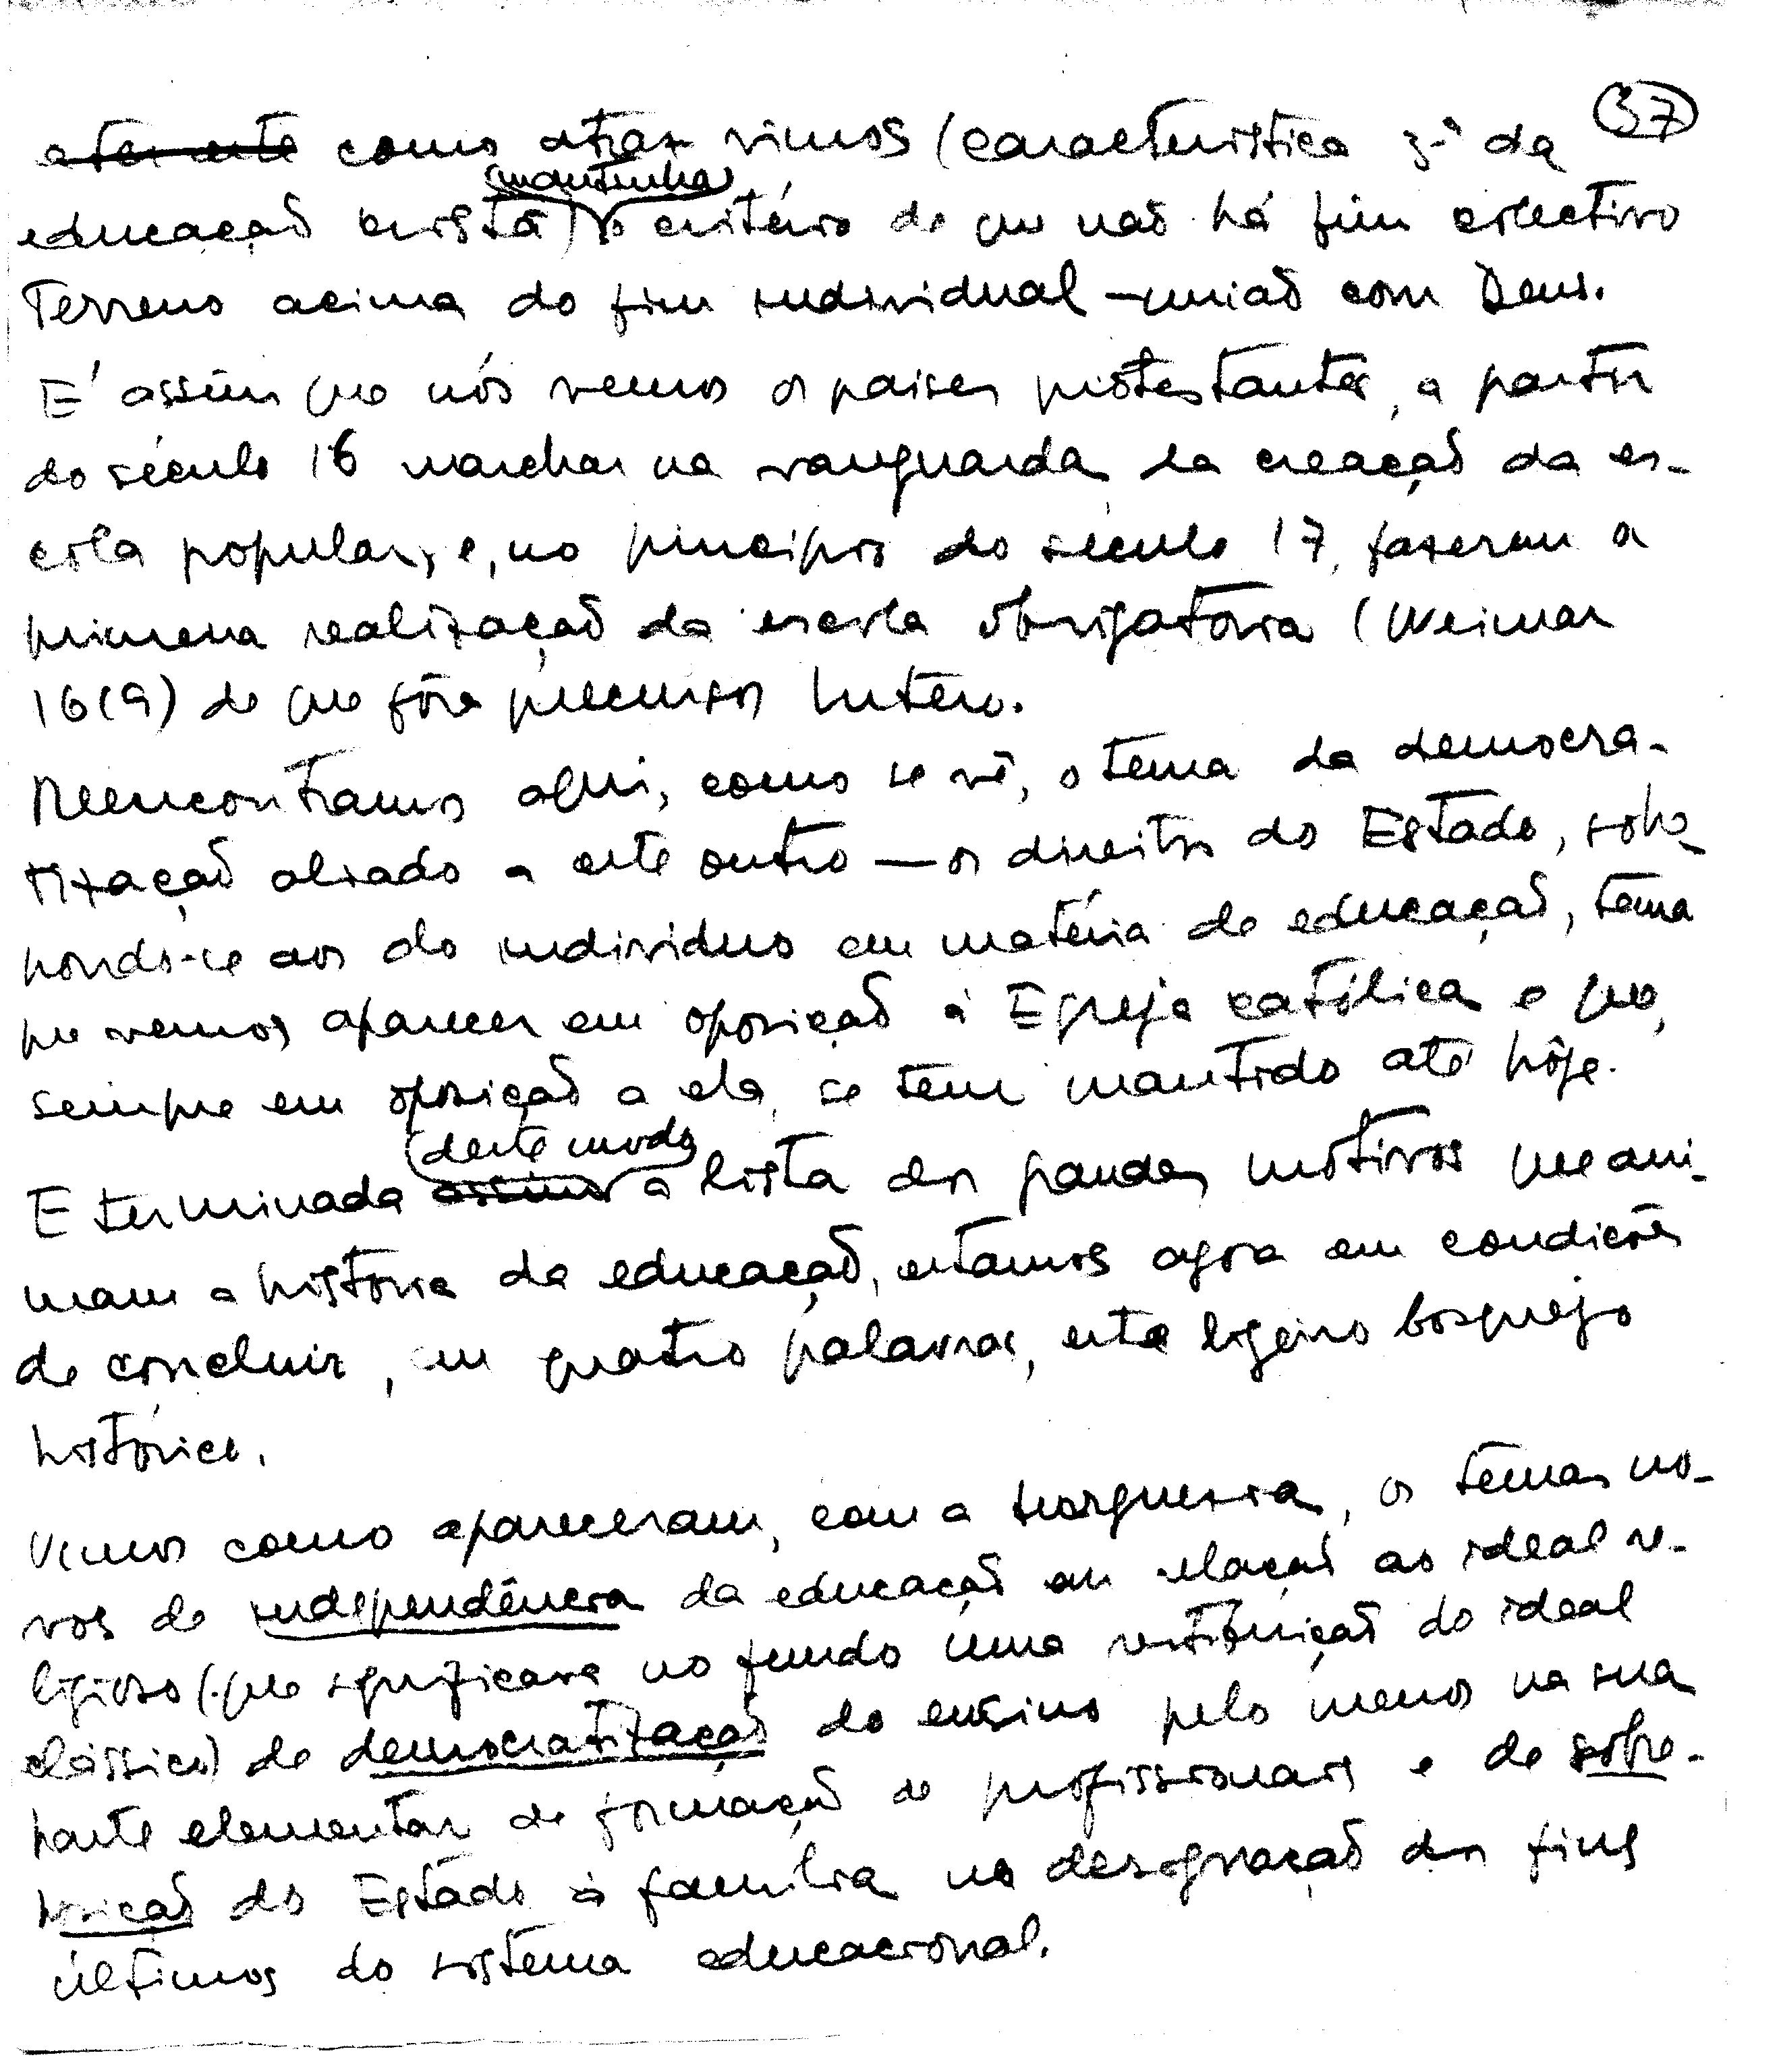 37
como atraz vimos (caracteristica 3ª da
mantinha
educação cristã) o critério de que não há fim colectivo
terreno acima do fim individual — união com Deus.
E' assim que nós vemos os paises protestantes, a partir
do século 16 marchar na vanguarda da creação da es-
cola popular, e, no principio do século 17, fazerem a
primeira realização da escola obrigatória (Weimar
1619) de que fôra precursor Lutero.
Reencontramos aqui, como se vê, o tema da democra-
tização aliado a este outro — os direitos do Estado, sobre-
pondo-se aos do individuo em matéria de educação, tema
que vemos aparecer em oposição á Egreja católica e que,
sempre em oposição a ela, se tem mantido até hôje.
deste modo
E terminada assim a lista dos grandes motivos que ani-
mam a história da educação, estamos agora em condições
de concluir, em quatro palavras, este ligeiro bosquejo
histórico.
Vimos como apareceram, com a burguesia, os temas no-
vos de independência da educação em relação ao ideal re-
ligioso (que significava no fundo uma restituição do ideal
clássico) de democratização do ensino pelo menos na sua
parte elementar de formação de profissionais e de sobre-
posição do Estado á família na designação dos fins
últimos do sistema educacional.